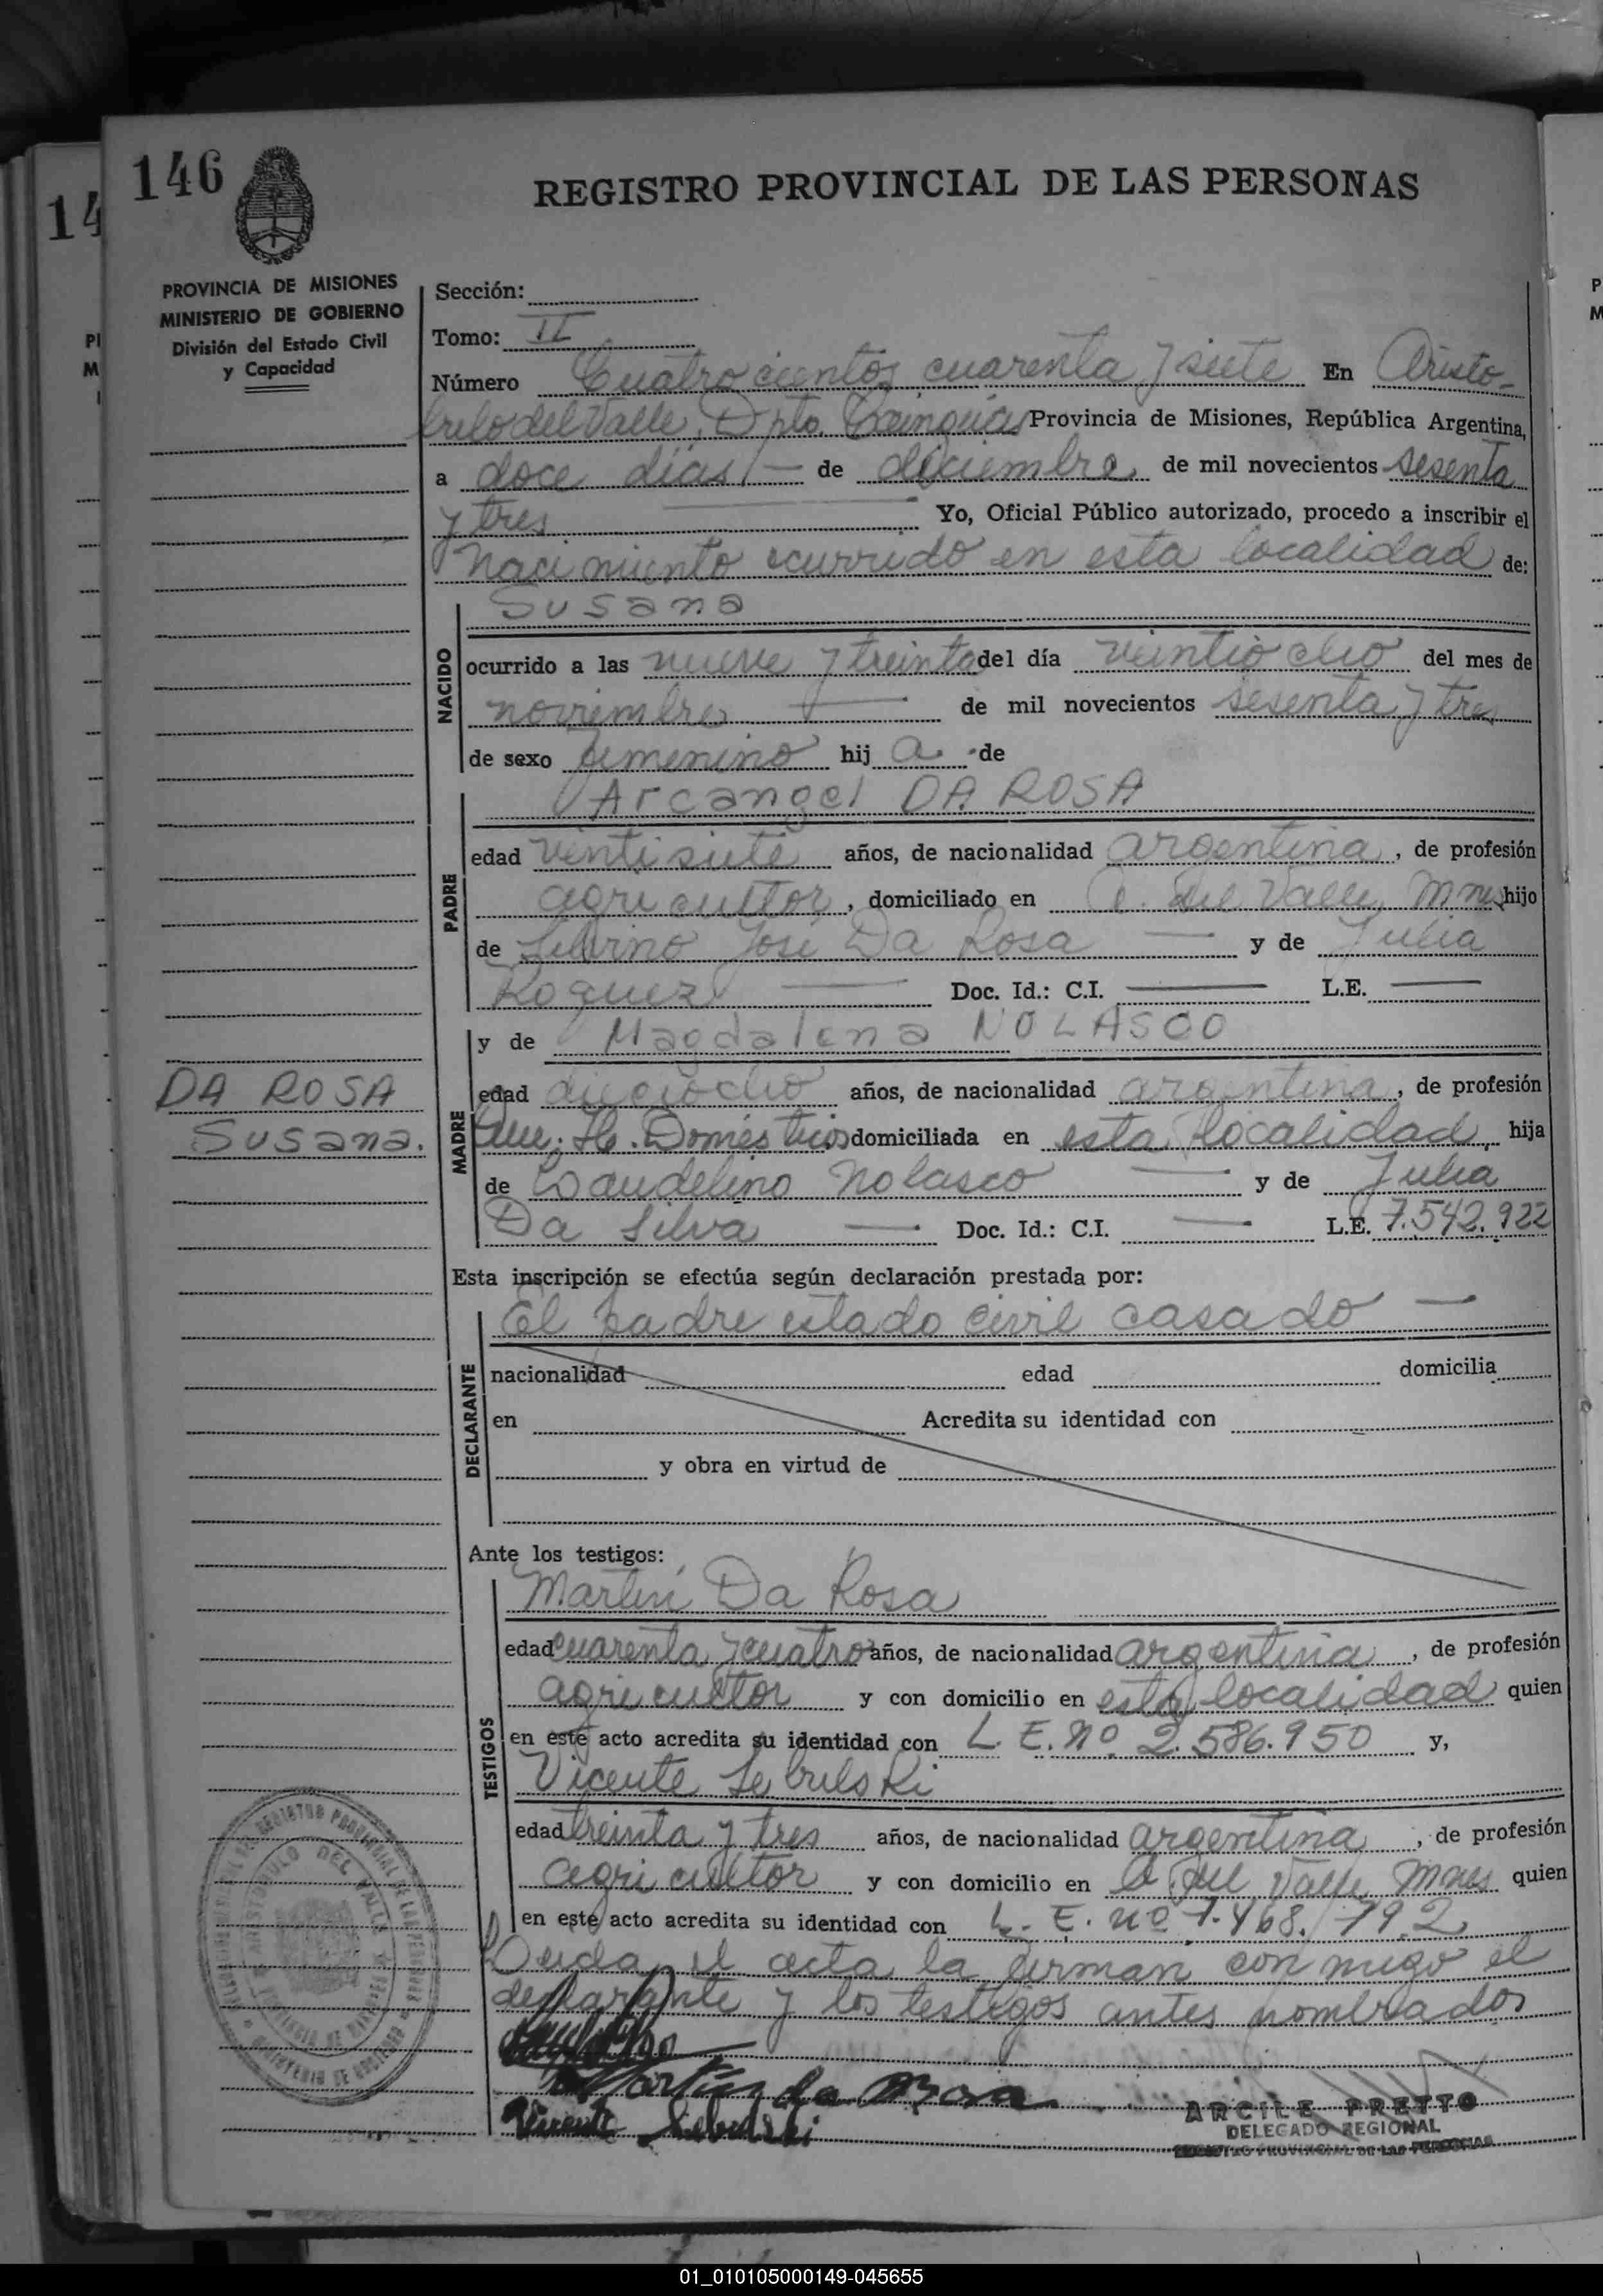 146
14
REGISTRO PROVINCIAL DE LAS PERSONAS
PROVINCIA DE MISIONES
MINISTERIO DE GOBIERNO
División del Estado Civil
y Capacidad
Sección:
Tomo: II
Número Cuatrocientos cuarenta y siete En Aristo-
bulo del Valle, Dpto. Cainguás Provincia de Misiones, República Argentina,
a doce días de diciembre de mil novecientos sesenta
y tres Yo, Oficial Público autorizado, procedo a inscribir el
nacimiento ocurrido en esta localidad de:
NACIDO
Susana
ocurrido a las nueve y treinta del día veintiocho del mes de
noviembre de mil novecientos sesenta y tres
de sexo femenino hij a de
PADRE
Arcangel DA ROSA
edad ventisiete años, de nacionalidad argentina, de profesión
agricultor, domiciliado en A. del Valle, Mnes hijo
de Silvino José Da Rosa y de Julia
Roguez Doc. Id.: C.I. L.E.
MADRE
y de Magdalena NOLASCO
edad dieciocho años, de nacionalidad argentina, de profesión
Que. H. Domésticos domiciliada en esta localidad, hija
de Laudelino Nolasco y de Julia
Da Silva Doc. Id.: C.I. L.E. 7.542.922
DA ROSA
Susana.
Esta inscripción se efectúa según declaración prestada por:
DECLARANTE
El padre estado civil casado
nacionalidad edad domicilia
en Acredita su identidad con
y obra en virtud de
Ante los testigos:
TESTIGOS
Martín Da Rosa
edad cuarenta y cuatro años, de nacionalidad argentina, de profesión
agricultor y con domicilio en esta localidad quien
en este acto acredita su identidad con L. E. nº 2.586.950 y,
Vicente Sebulski
edad treinta y tres años, de nacionalidad argentina, de profesión
agricultor y con domicilio en A. del Valle, Mnes quien
en este acto acredita su identidad con L. E. nº 7.468.792
Leída el acta la firman conmigo el
declarante y los testigos antes nombrados
Martin da Rosa
Vicente Sebulski
ARCILE PRETTO
DELEGADO REGIONAL
REGISTRO PROVINCIAL DE LAS PERSONAS
01_010105000149-045655